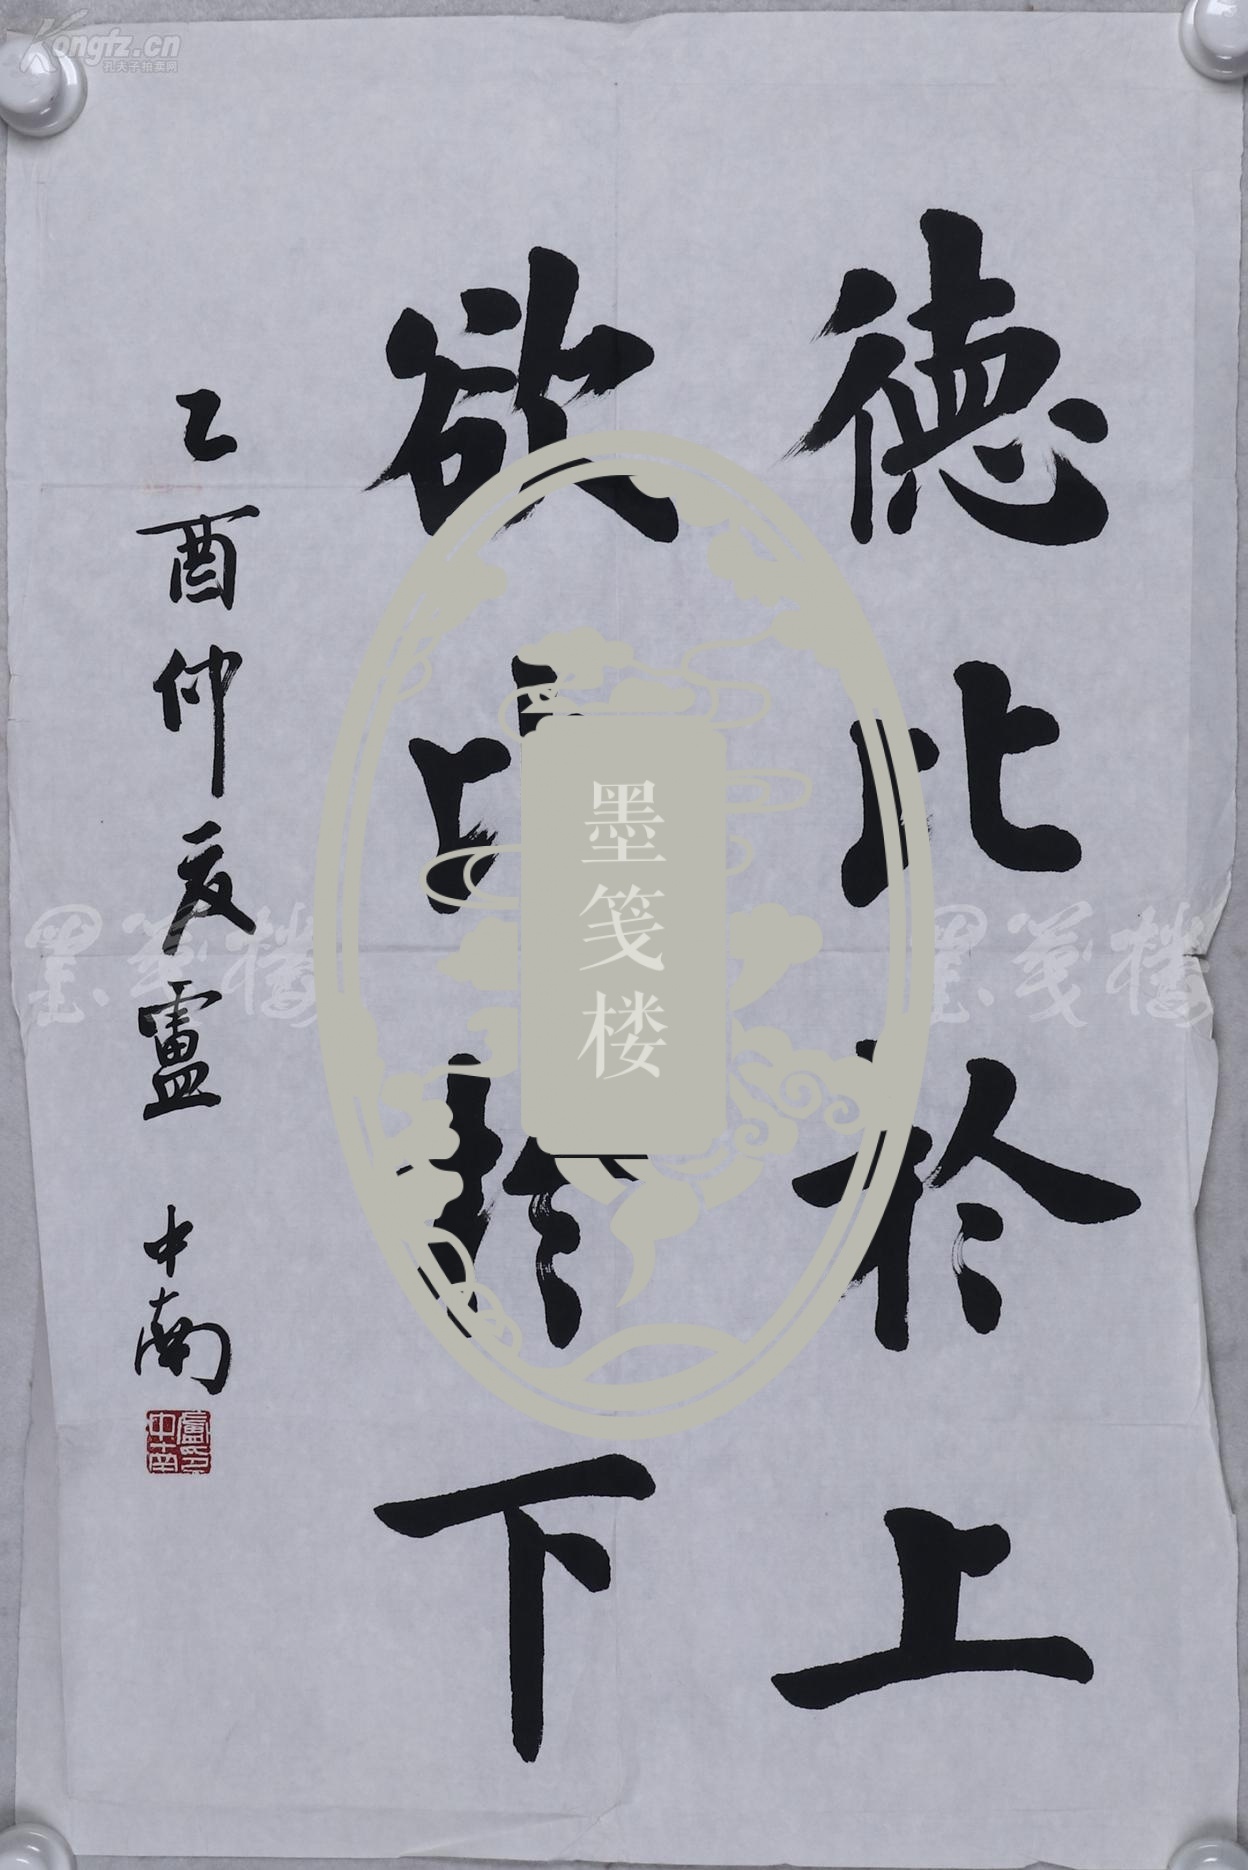 德比於上
欲比於下
乙酉仲夏盧中南
盧中南印
墨笺楼
墨笺楼
墨笺楼
Kongfz.cn
孔夫子拍卖网